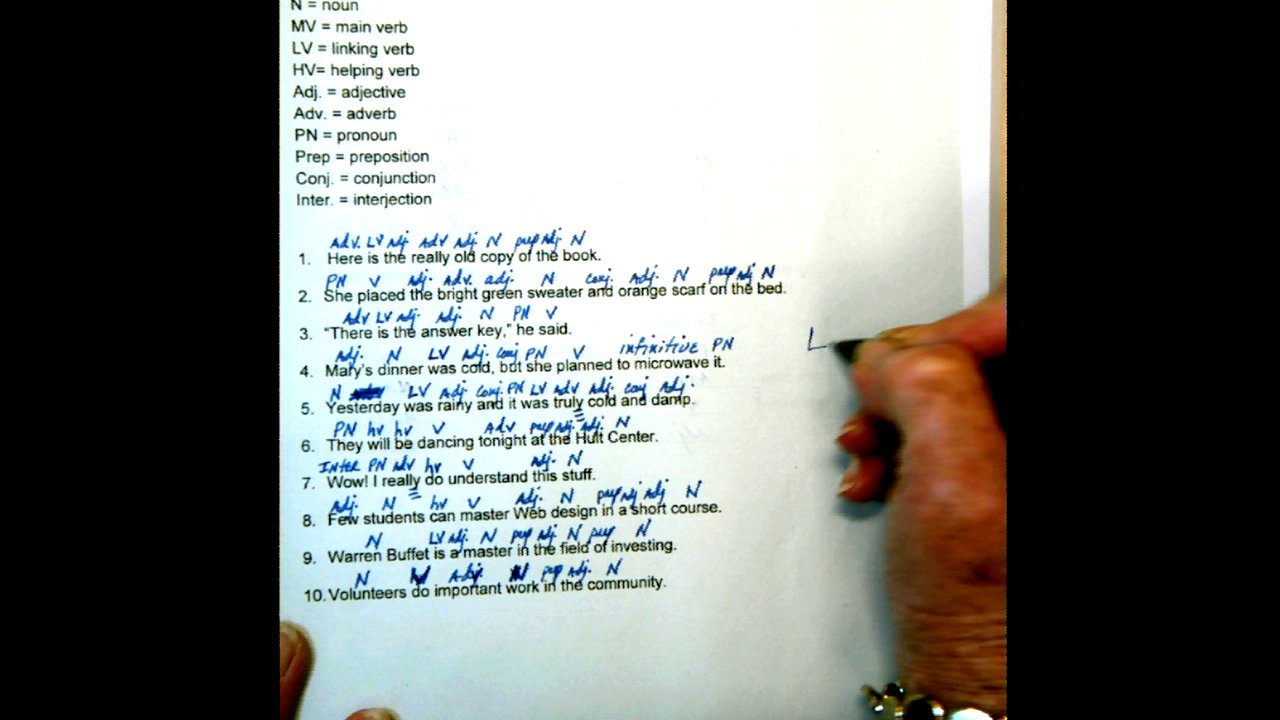 N = noun
MV = main verb
LV = linking verb
HV= helping verb
Adj. = adjective
Adv. = adverb
PN = pronoun
Prep = preposition
Conj. = conjunction
Inter. = interjection
Adv. LV Adj. Adv Adj. N prep Adj. N
1. Here is the really old copy of the book.
PN V Adj. Adv. adj. N conj. Adj. N prep Adj N
2. She placed the bright green sweater and orange scarf on the bed.
Adv LV Adj. Adj. N PN V
3. “There is the answer key,” he said.
Adj. N LV Adj. conj PN V infinitive PN
4. Mary's dinner was cold, but she planned to microwave it.
N LV Adj conj. PN LV Adv Adj. conj Adj.
5. Yesterday was rainy and it was truly cold and damp.
PN hv hv V Adv prep Adj. Adj. N
6. They will be dancing tonight at the Hult Center.
Inter PN Adv hv V Adj. N
7. Wow! I really do understand this stuff.
Adj. N hv V Adj. N prep Adj Adj N
8. Few students can master Web design in a short course.
N LV Adj. N prep Adj N prep N
9. Warren Buffet is a master in the field of investing.
N Adj N prep Adj. N
10. Volunteers do important work in the community.
L